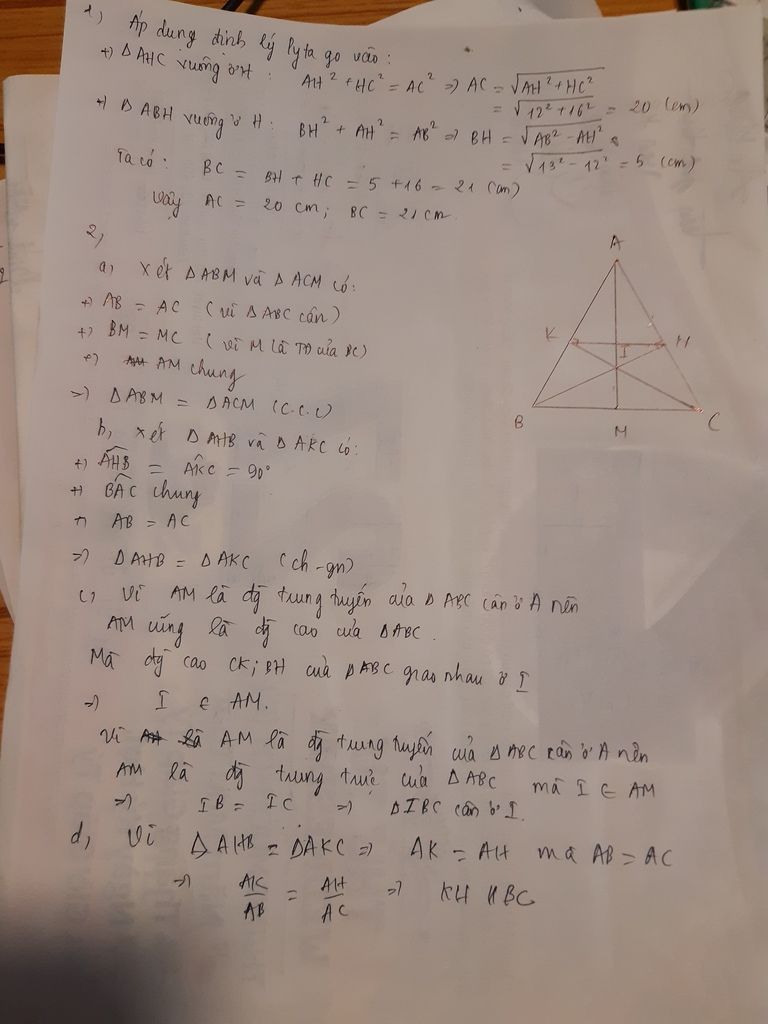 1, Áp dụng định lý Pytago vào:
+) Δ AHC vuông ở H: AH² + HC² = AC² => AC = √AH² + HC²
= √12² + 16² = 20 (cm)
+) Δ ABH vuông ở H: BH² + AH² = AB² => BH = √AB² - AH²
= √13² - 12² = 5 (cm)
Ta có: BC = BH + HC = 5 + 16 = 21 (cm)
Vậy AC = 20 cm; BC = 21 cm.
2,
a, Xét ΔABM và ΔACM có:
+) AB = AC (vì ΔABC cân)
+) BM = MC (vì M là TĐ của BC)
+) AM chung
=> ΔABM = ΔACM (c.c.c)
b, Xét ΔAHB và ΔAKC có:
+) AHB = AKC = 90°
+) BAC chung
+) AB = AC
=> ΔAHB = ΔAKC (ch-gn)
c, Vì AM là đg trung tuyến của ΔABC cân ở A nên
AM cũng là đg cao của ΔABC.
Mà đg cao CK; BH của ΔABC giao nhau ở I
=> I ∈ AM.
Vì AM là đg trung tuyến của ΔABC cân ở A nên
AM là đg trung trực của ΔABC mà I ∈ AM
=> IB = IC => ΔIBC cân ở I.
d, Vì ΔAHB = ΔAKC => AK = AH mà AB = AC
=> AK/AB = AH/AC => KH // BC
A
K
I
H
B
M
C